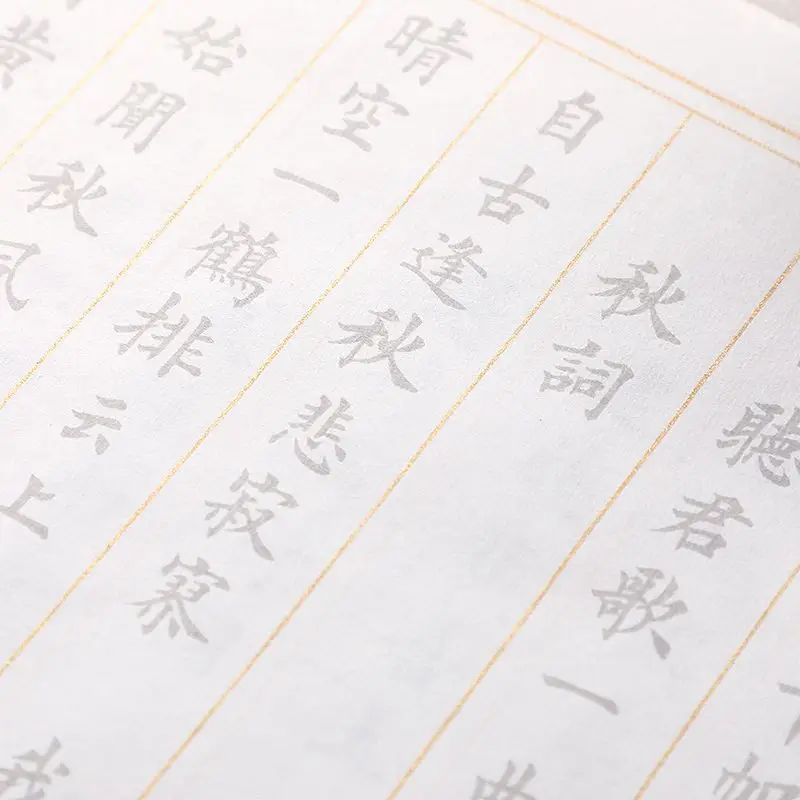 帆
聽君歌一曲
秋詞
自古逢秋悲寂寥 我
晴空一鶴排云上
始聞秋
黄